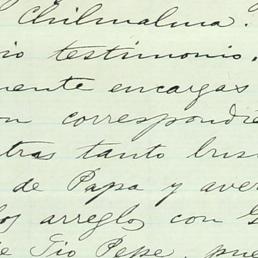 Chihualma.
io testimonio.
mente encargas
on correspondie
tras tanto busc
de Papa y aver
los arreglos con G
e Tio Pepe, pue